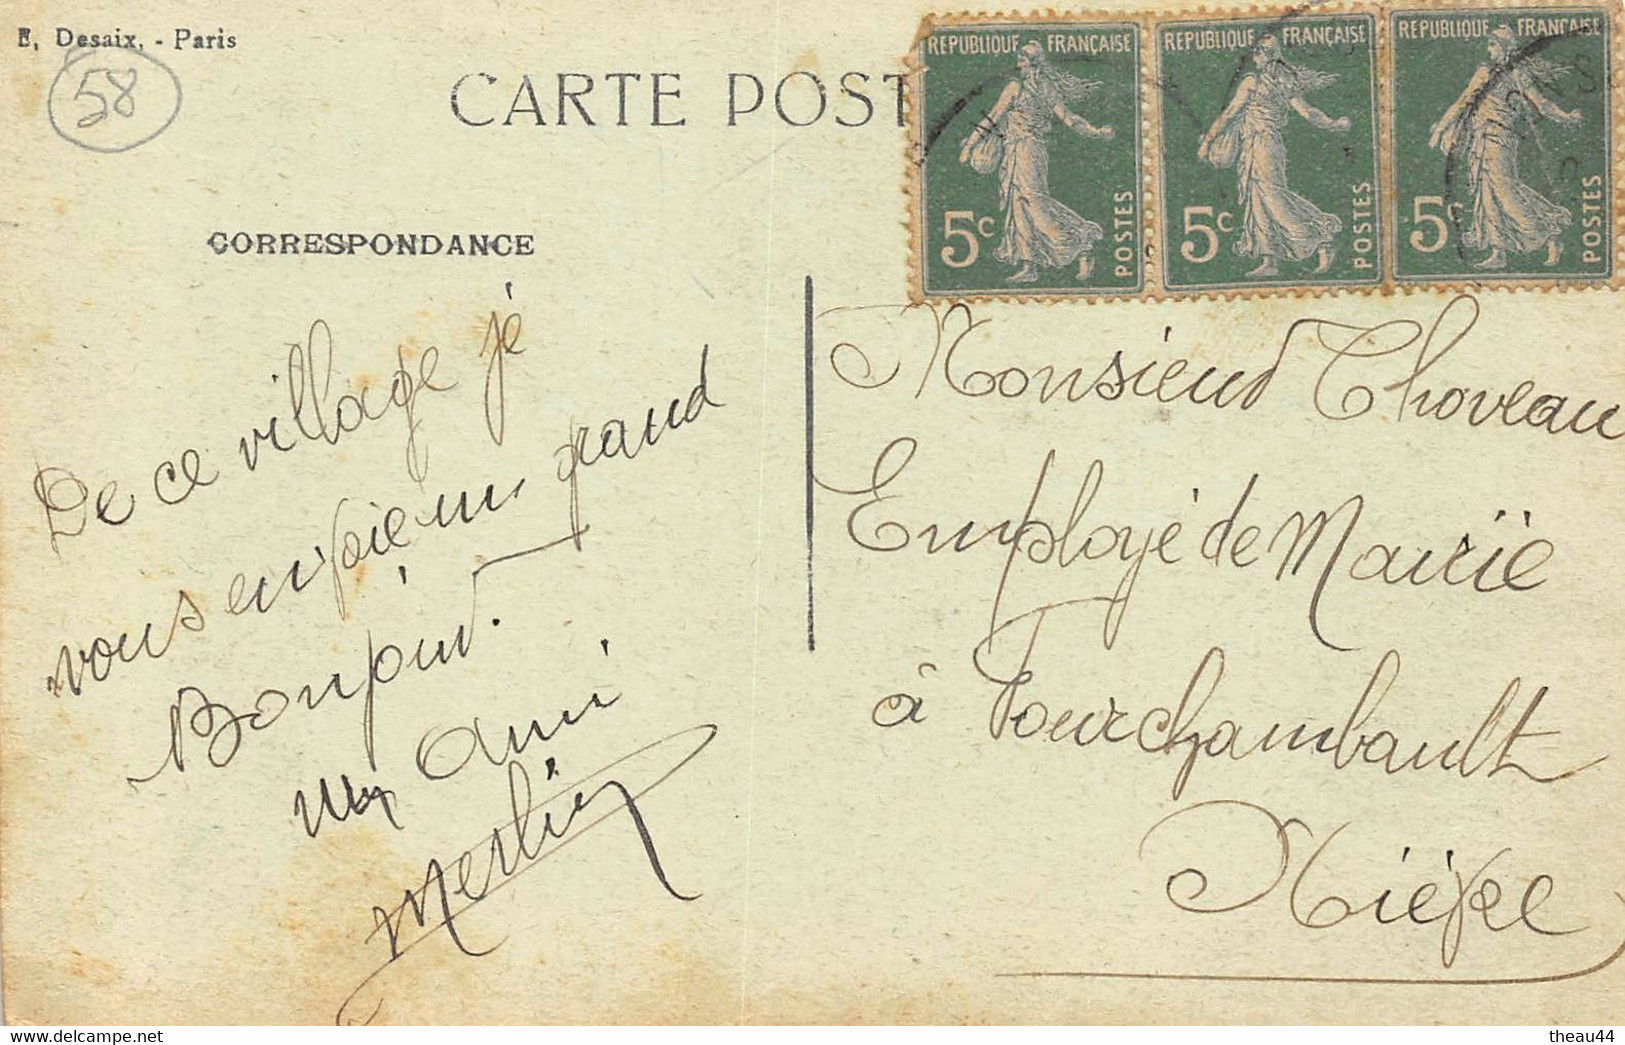 E. Desaix. - Paris
58
CARTE POST
CORRESPONDANCE
De ce village je
vous envoie un grand
Bonjour.
un ami
Merlin
RÉPUBLIQUE FRANÇAISE
5c POSTES
RÉPUBLIQUE FRANÇAISE
5c POSTES
RÉPUBLIQUE FRANÇAISE
5c POSTES
Monsieur Thoveau
Employé de Mairie
à Fourchambault
Nièvre
www.delcampe.net
theau44